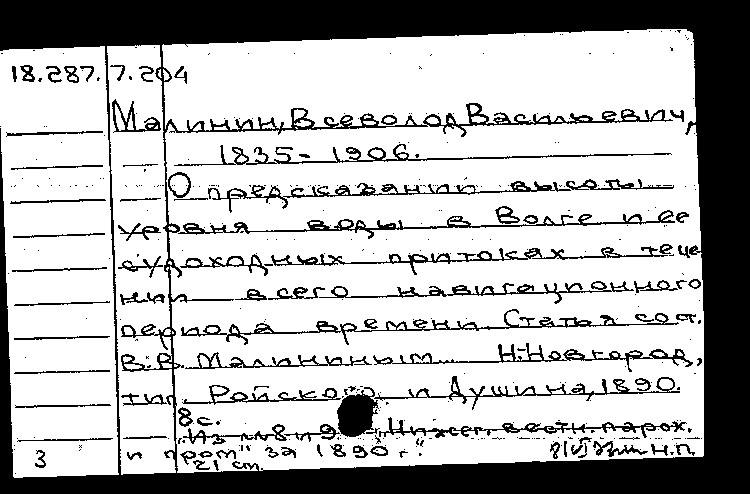 18.287.7.204
Малинин, Всеволод Васильевич,
1835-1906.
О предсказании высоты
уровня воды в Волге и ее
судоходных притоках в тече
нии всего навигационного
периода времени. Статья сост.
В.В. Малининым. Н.-Новгород,
тип. Ройского и Душина, 1890.
8 с.
"Из №№ 8 и 9 "Нижег. вестн. парох.
и пром" за 1890 г."
3 21 см. н.п.